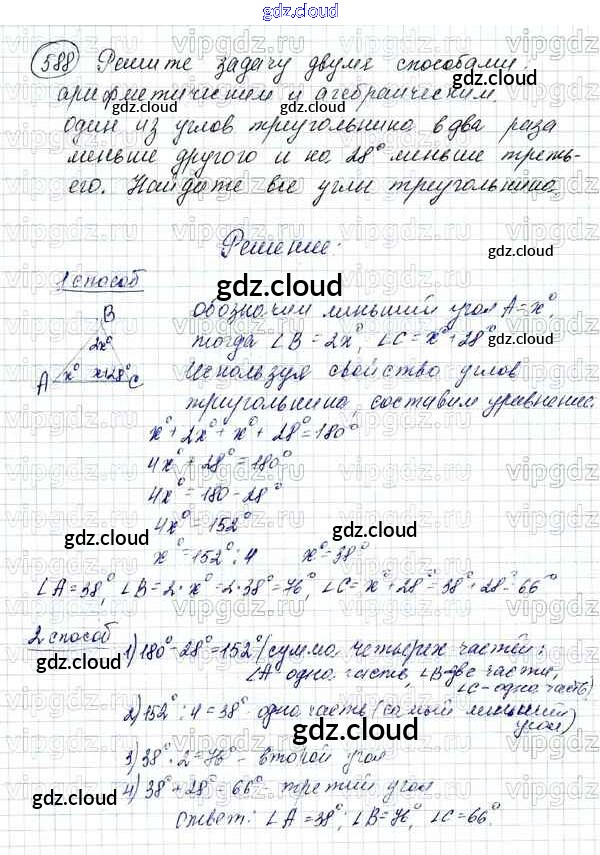 gdz.cloud
588 Решите задачу двумя способами:
арифметическим и алгебраическим.
Один из углов треугольника в два раза
меньше другого и на 28° меньше треть-
его. Найдите все углы треугольника.
Решение:
1 способ
B
2x°
A x° x+28° C
Обозначим меньший угол A = x°,
тогда ∠B = 2x°, ∠C = x° + 28°
Используя свойство углов
треугольника, составим уравнение.
x° + 2x° + x° + 28° = 180°
4x° + 28° = 180°
4x° = 180 - 28°
4x° = 152°
x° = 152° : 4 x° = 38°
∠A = 38°, ∠B = 2 · x° = 2 · 38° = 76°, ∠C = x° + 28° = 38° + 28° = 66°
2 способ
1) 180° - 28° = 152° (сумма четырех частей:
∠A одна часть, ∠B - две части,
∠C - одна часть)
2) 152° : 4 = 38° одна часть (самый меньший
угол)
3) 38° · 2 = 76° - второй угол
4) 38° + 28° = 66° - третий угол
Ответ: ∠A = 38°, ∠B = 76°, ∠C = 66°.
gdz.cloud